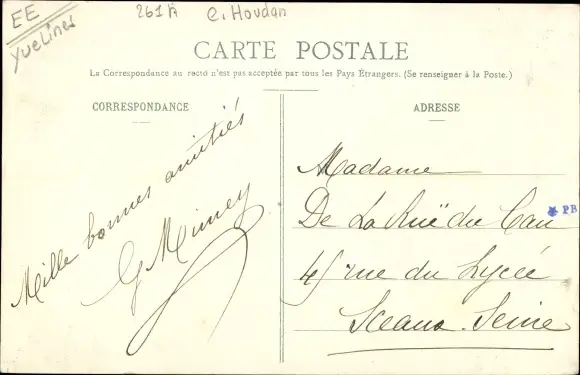 EE
Yvelines
261A
C. Houdan
CARTE POSTALE
La Correspondance au recto n'est pas acceptée par tous les Pays Étrangers. (Se renseigner à la Poste.)
CORRESPONDANCE
Mille bonnes amitiés
G Minney
ADRESSE
Madame
De La Ruë du Can
4 rue du Lycée
Sceaux. Seine
PB